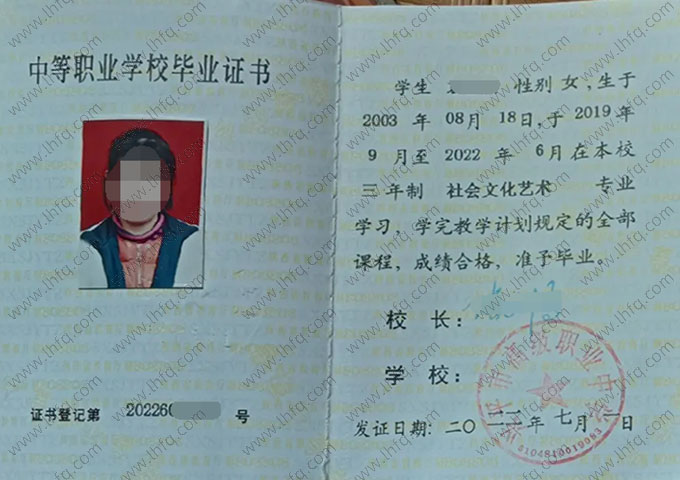 中等职业学校毕业证书
证书登记第 202260 号
学生 性别 女,生于
2003 年 08月 18日,于 2019 年
9 月至 2022 年 6月在本校
三年制 社会文化艺术 专业
学习,学完教学计划规定的全部
课程,成绩合格,准予毕业。
校 长:
学 校:
发证日期:二〇二二年七月一日
职业中
www.lhfq.com